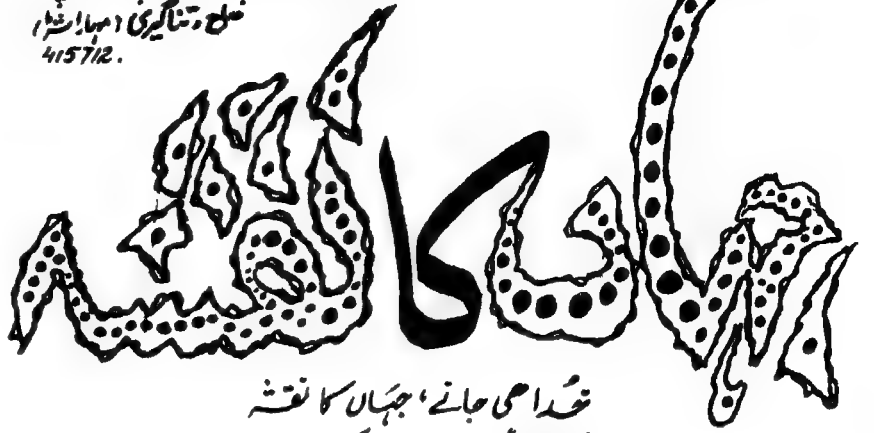 ضلع رتناگیری (مہاراشٹر)
415712.
جہاں کا نقشہ
خُدا ہی جانے، جہَاں کا نقشہ